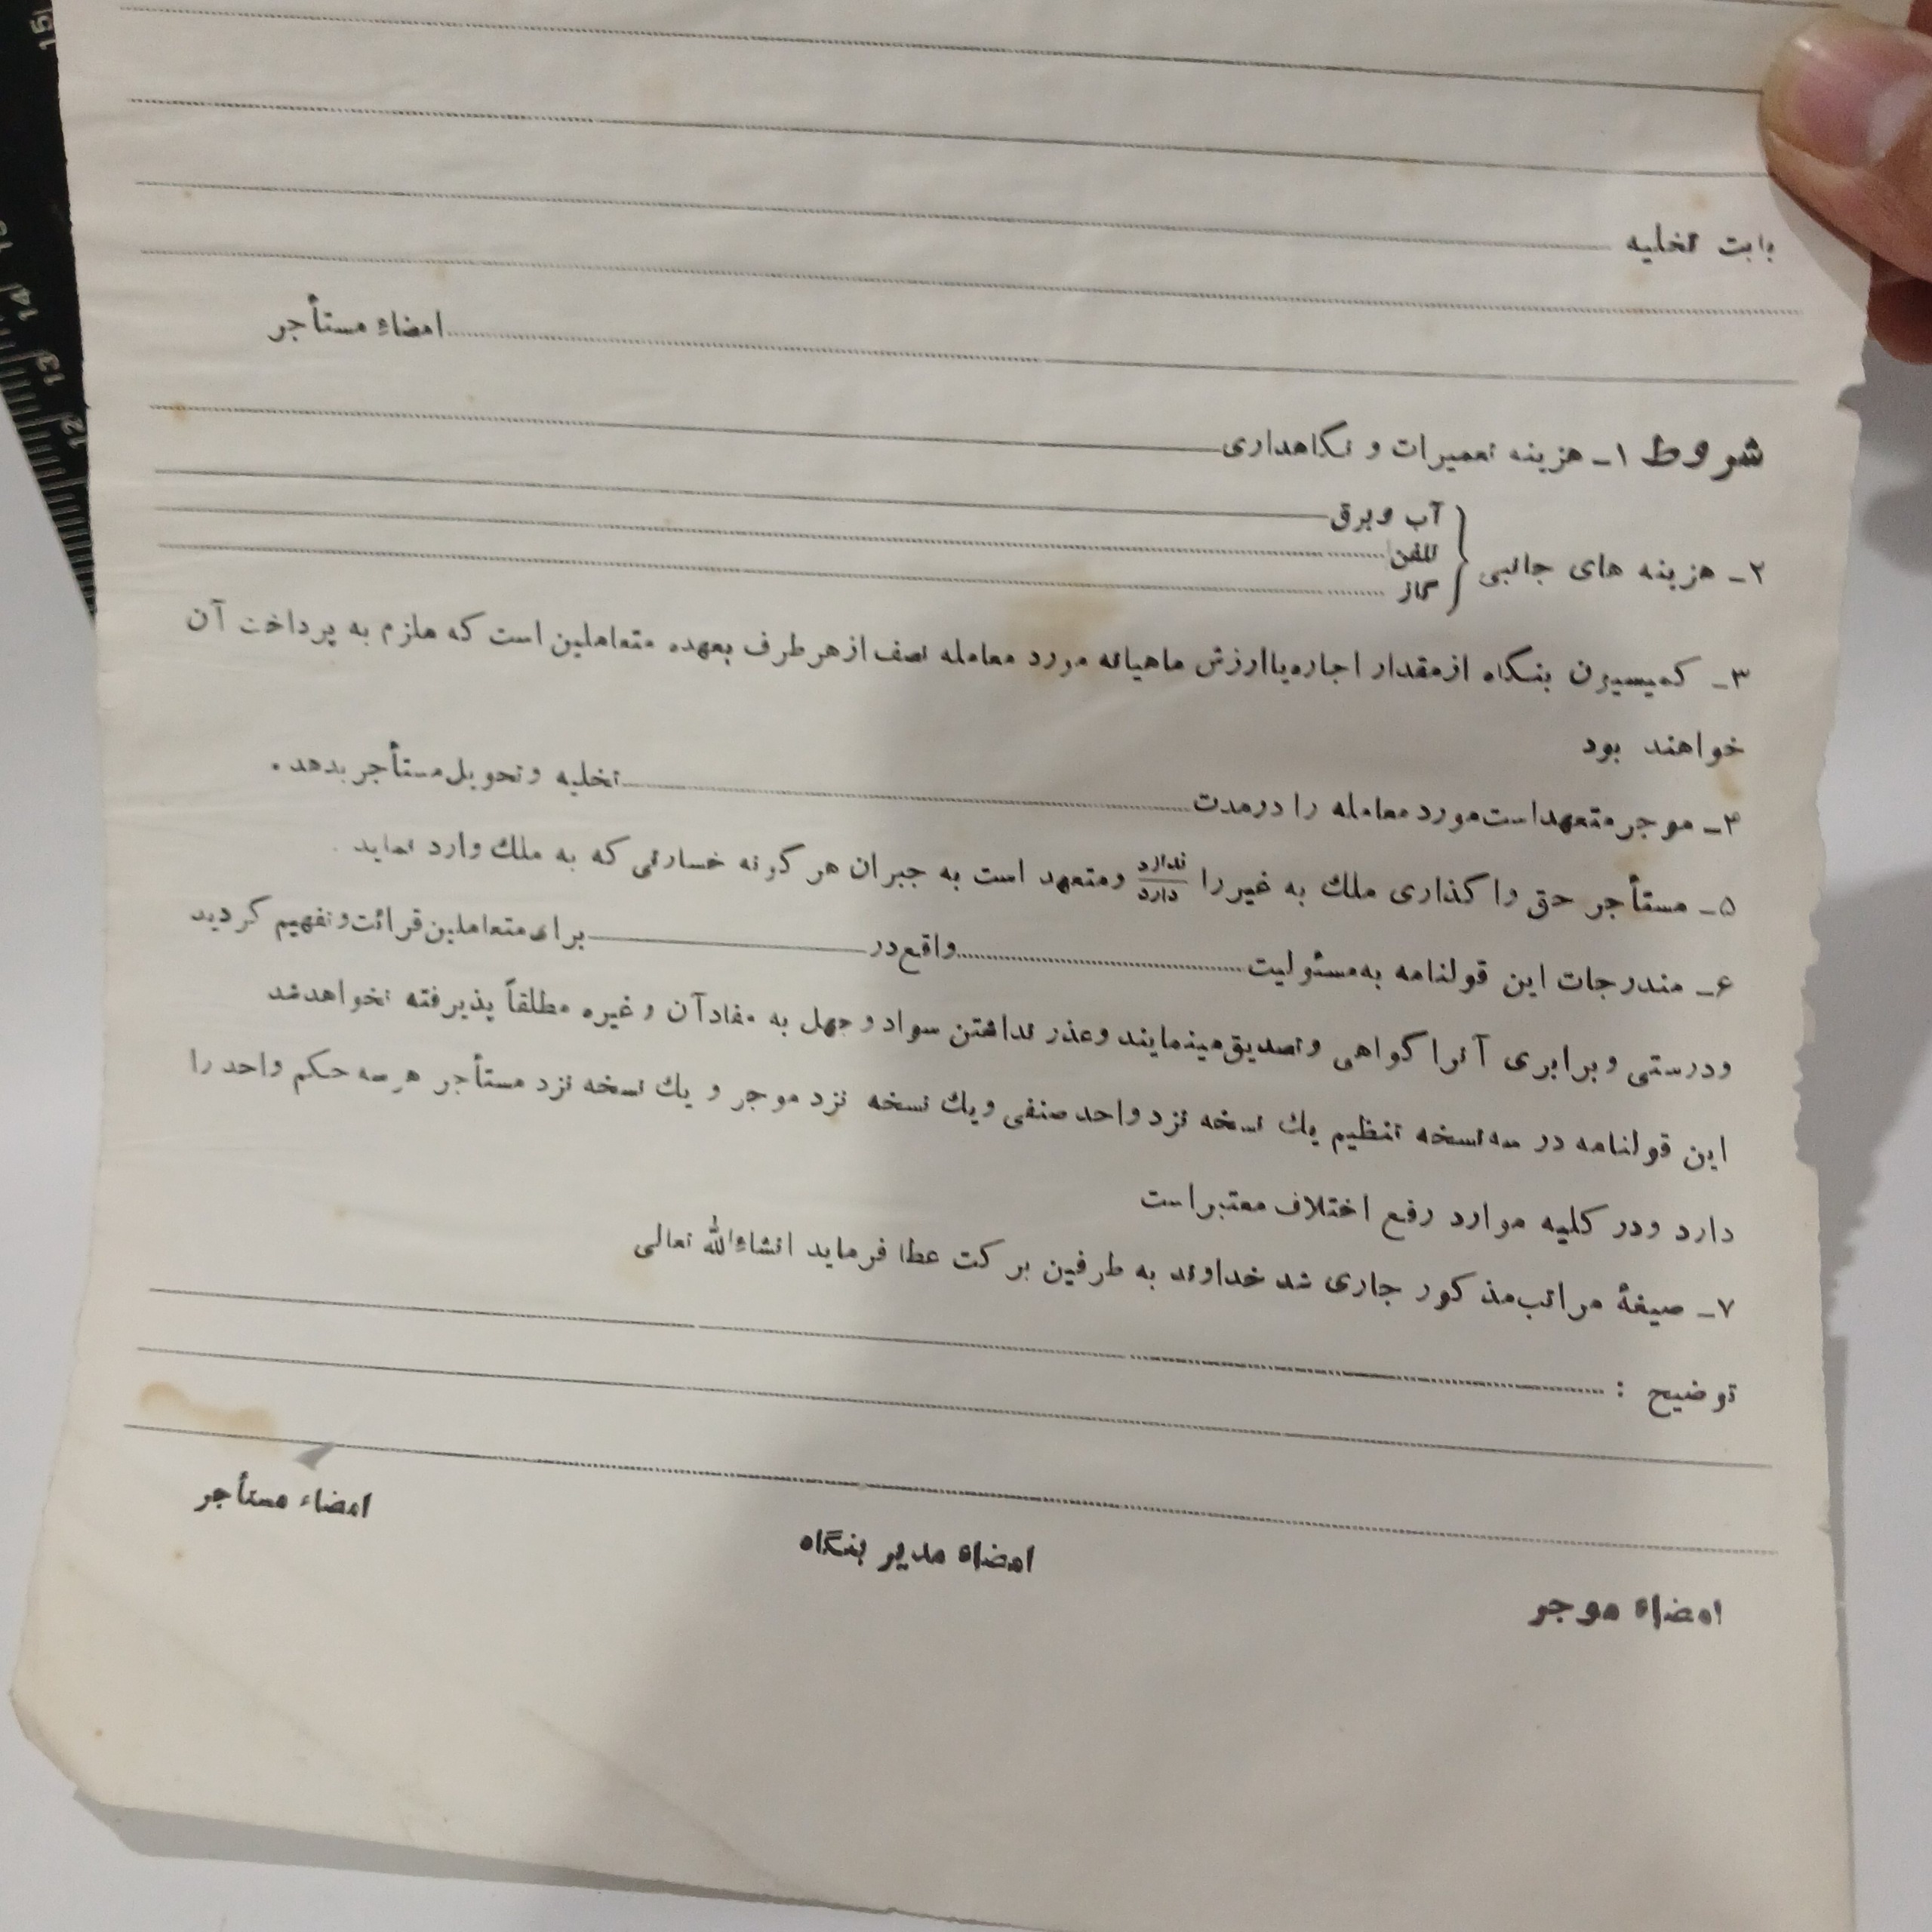 بابت تخلیه
امضاء مستأجر
شروط ۱ـ هزینه تعمیرات و نگاهداری
۲ـ هزینه های جانبی { آب وبرق
تلفن
گاز
۳ـ کمیسیون بنگاه ازمقدار اجاره یاارزش ماهیانه مورد معامله نصف ازهرطرف بعهده متعاملین است که ملزم به پرداخت آن
خواهند بود
۴ـ موجرمتعهداست مورد معامله را درمدت تخلیه وتحویل مستأجربدهد.
۵ـ مستأجر حق واگذاری ملك به غیررا ندارد/دارد ومتعهد است به جبران هرگونه خسارتی که به ملك وارد نماید.
۶ـ مندرجات این قولنامه به مسئولیت واقع در برای متعاملین قرائت وتفهیم گردید
ودرستی وبرابری آنرا گواهی وتصدیق مینمایند وعذر نداشتن سواد وجهل به مفادآن وغیره مطلقاً پذیرفته نخواهدشد
این قولنامه در سه نسخه تنظیم یك نسخه نزد واحد صنفی ویك نسخه نزد موجر و یك نسخه نزد مستأجر هرسه حکم واحد را
دارد ودر کلیه موارد رفع اختلاف معتبراست
۷ـ صیغهٔ مراتب مذکور جاری شد خداوند به طرفین برکت عطا فرماید انشاءالله تعالی
توضیح :
امضاء مستأجر
امضاء مدیر بنگاه
امضاء موجر
15
14
13
12